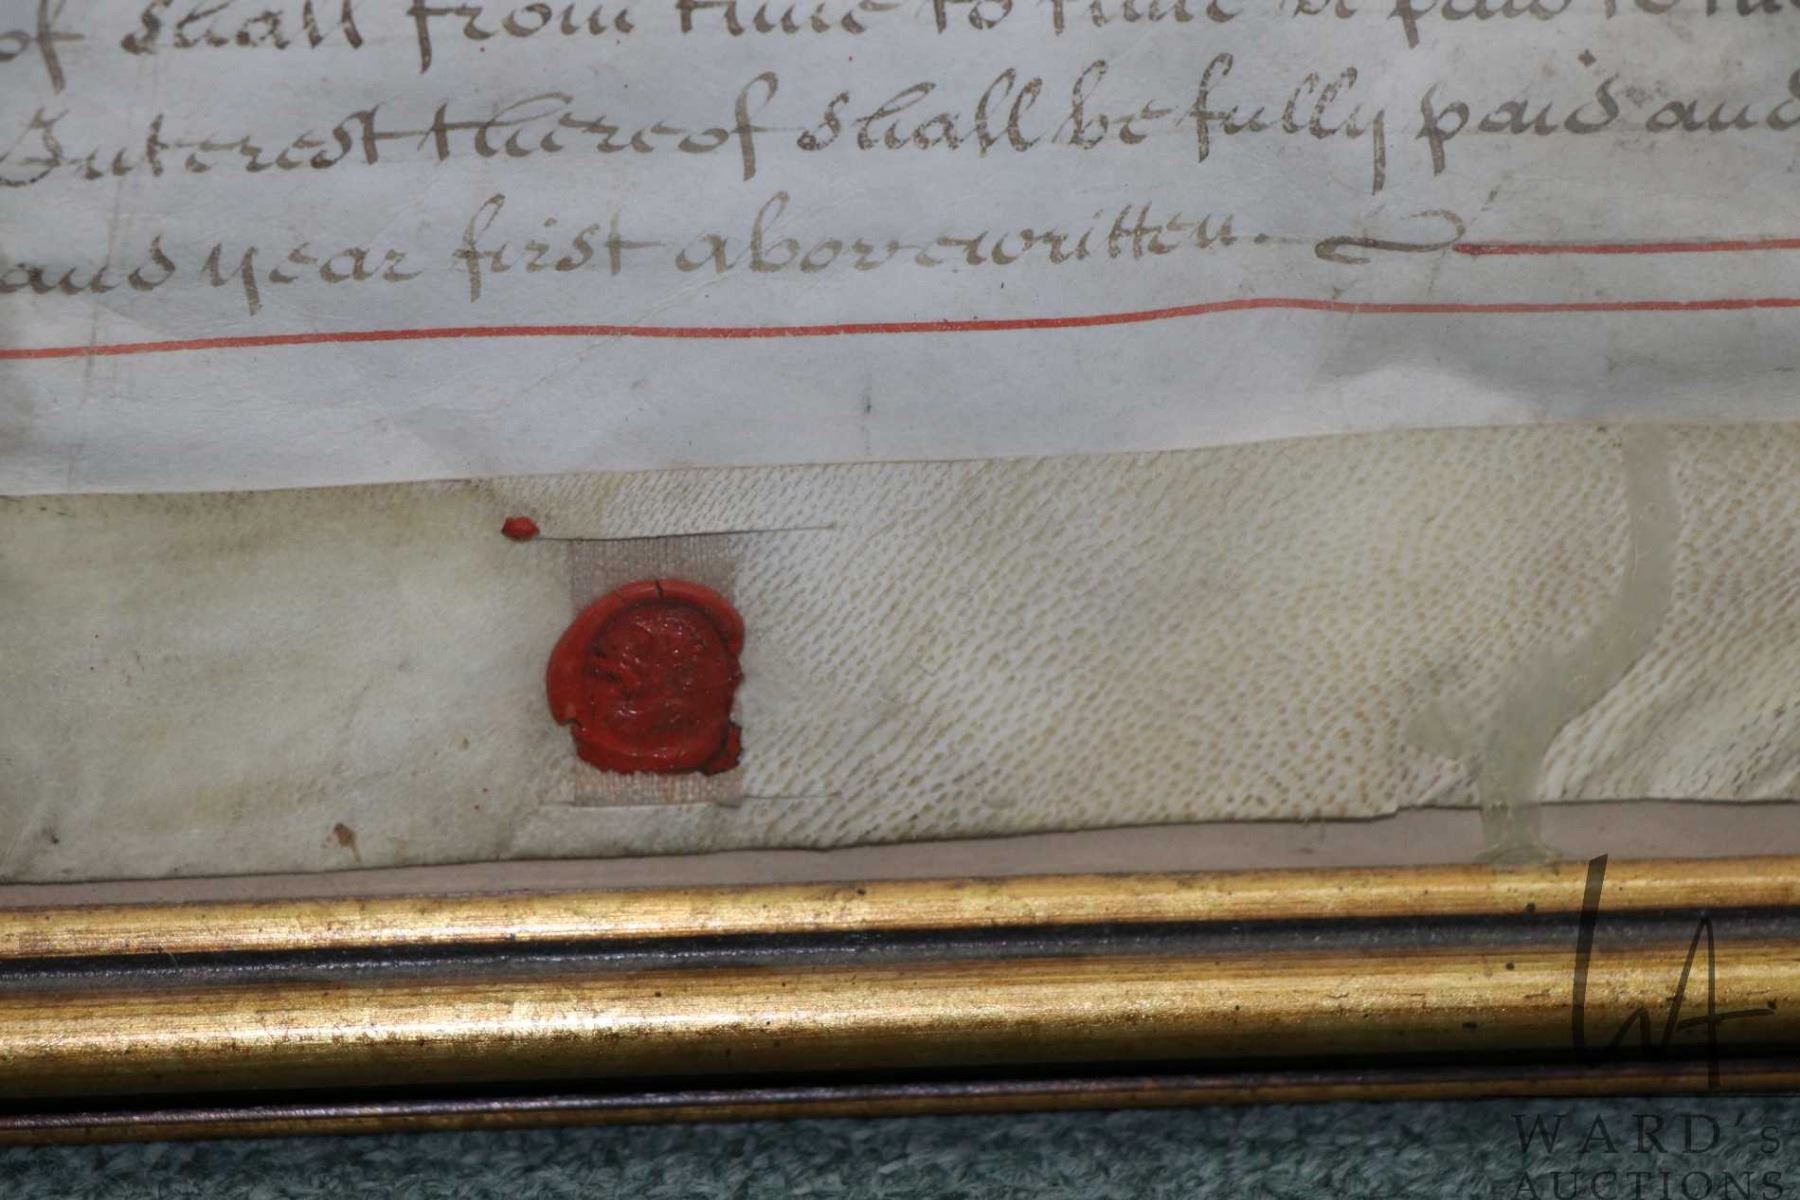 of shall from time to time be paid
Interest thereof shall be fully paid and
and year first abovewritten.
WA
WARD's
AUCTIONS